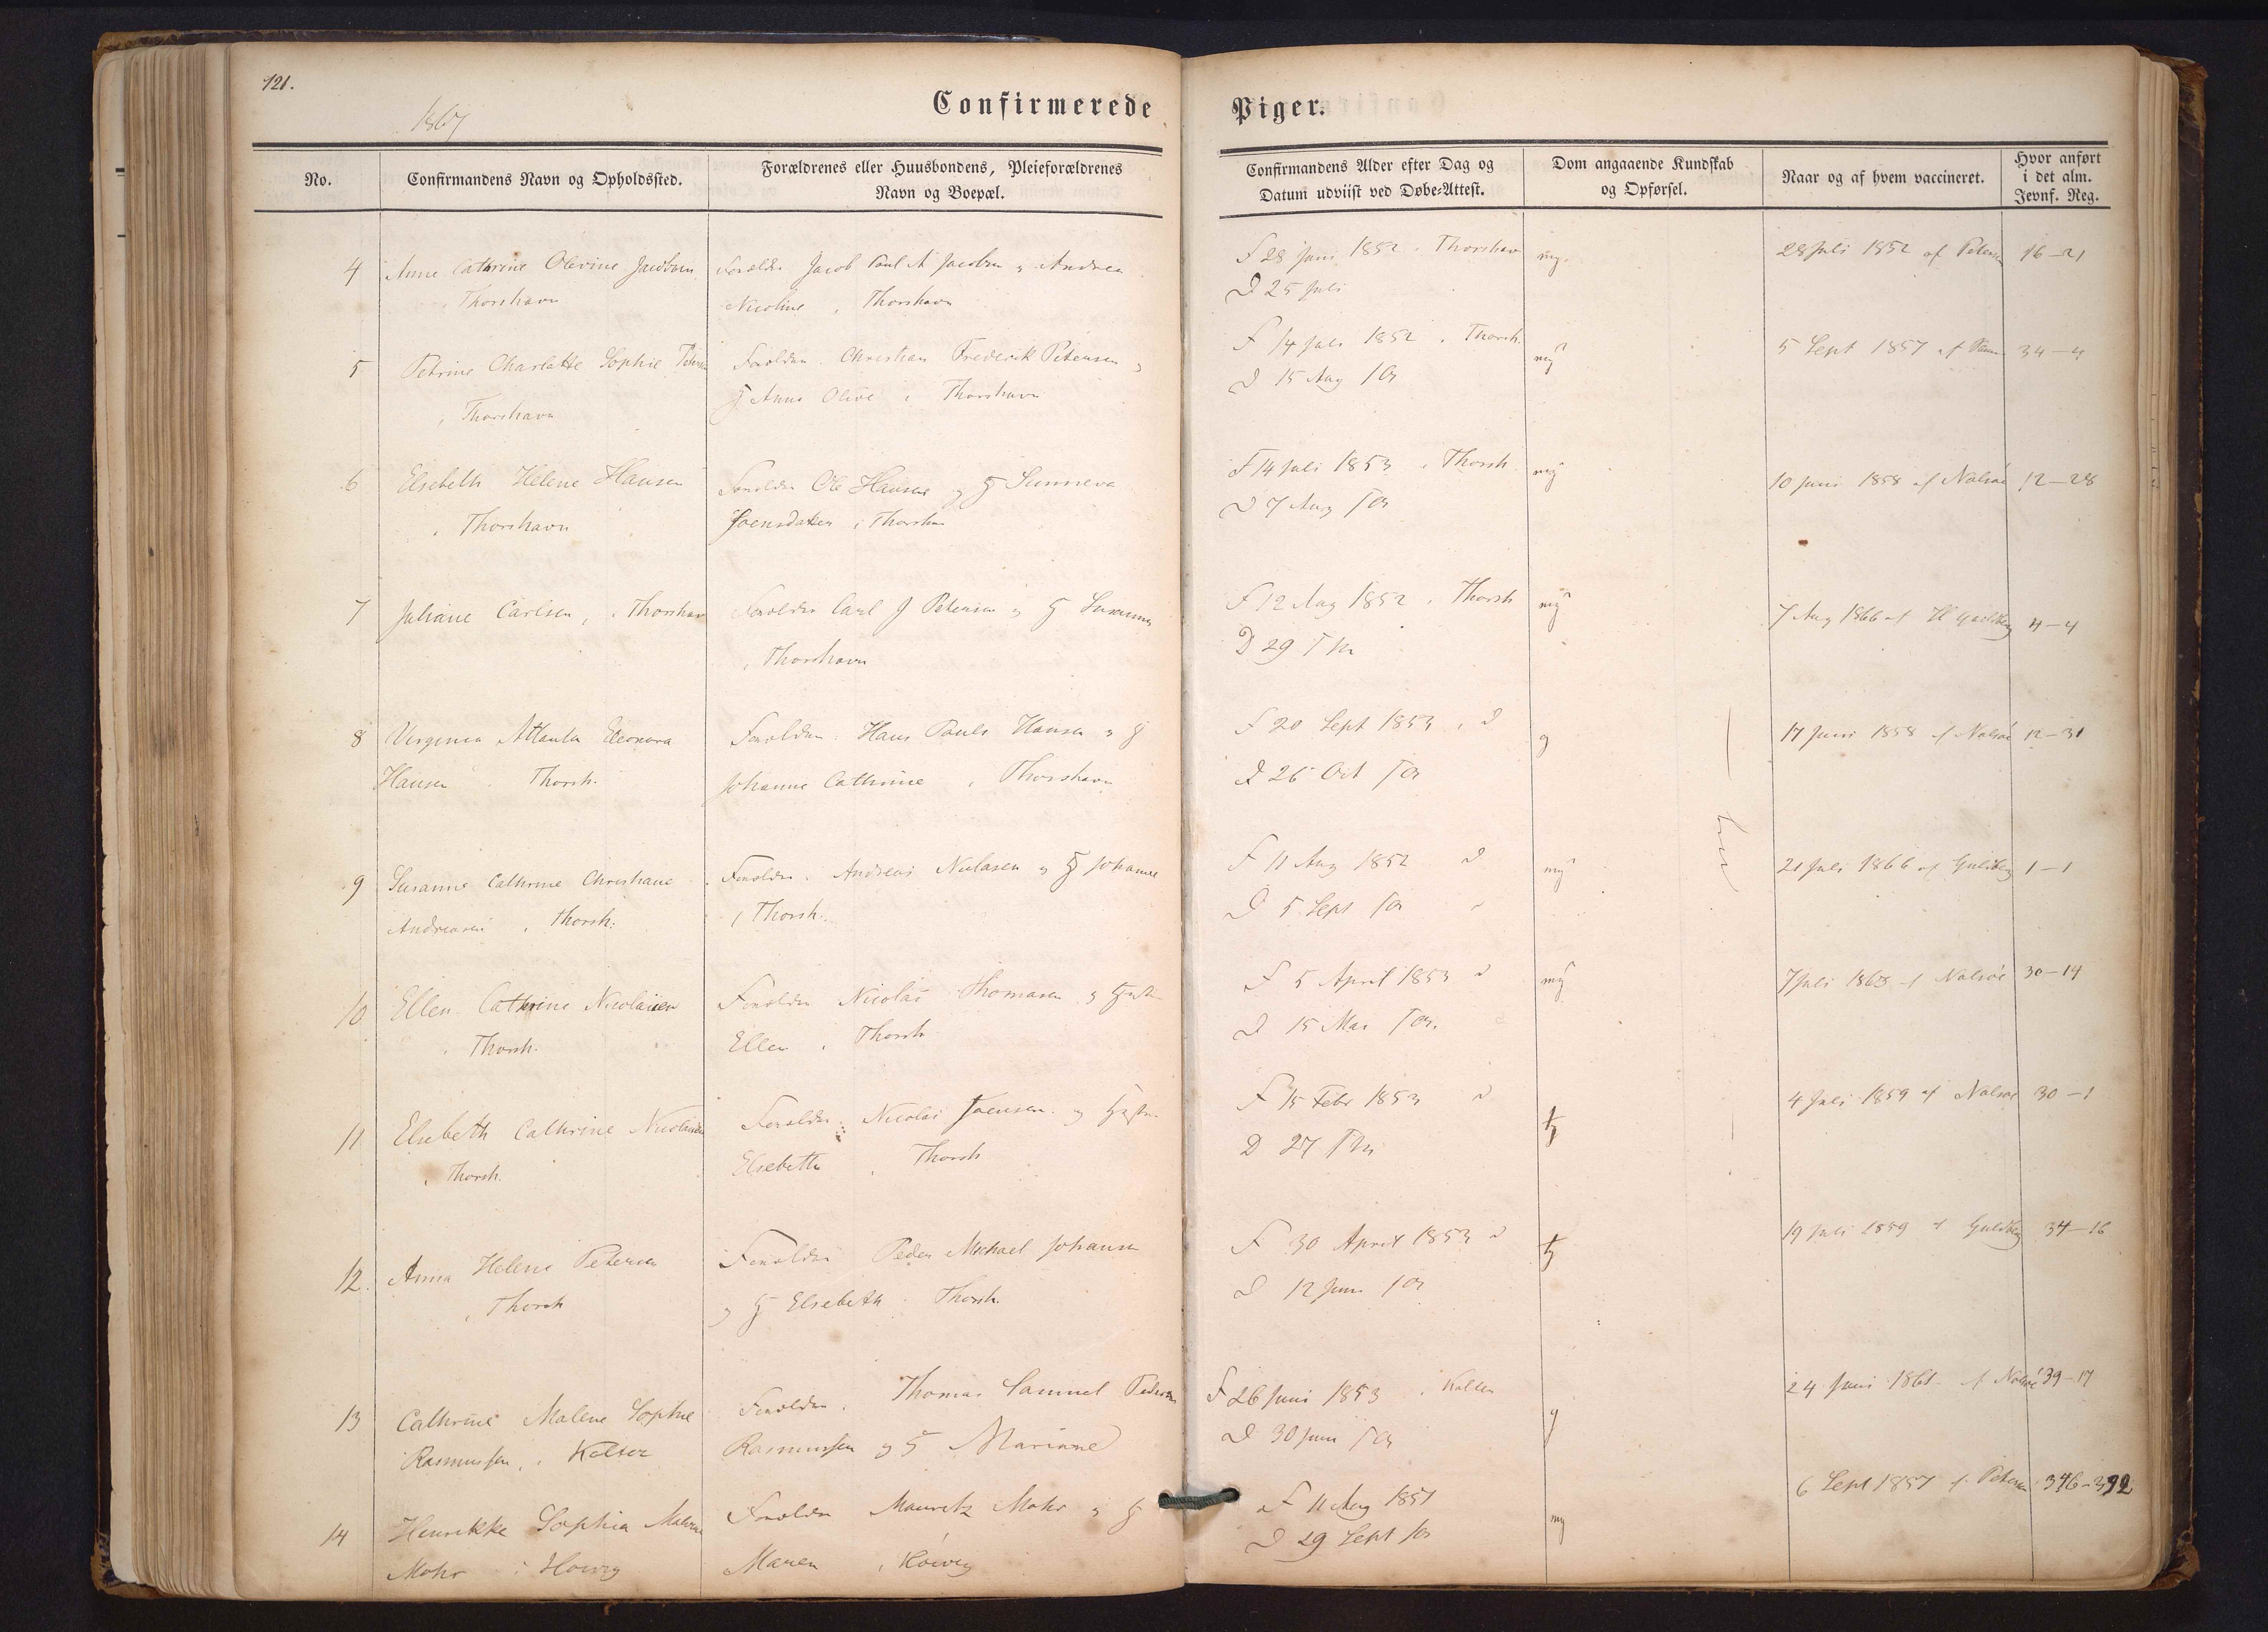 121.
1867
Confirmerede Piger.
No.
Confirmandens Navn og Opholdssted.
Forældrenes eller Huusbondens, Pleieforældrenes
Navn og Boepæl.
Confirmandens Alder efter Dag og
Datum udviist ved Døbe-Attest.
Dom angaaende Kundskab
og Opførsel.
Naar og af hvem vaccineret.
Hvor anført
i det alm.
Jevnf. Reg.
4 Anne Cathrine Olevine Jacobsen
i Thorshavn
Forældre Jacob Paul A Jacobsen og Andrea
Nicoline i Thorshavn
F 28 Juni 1852 i Thorshav
D 25 Juli
mg
28 Juli 1852 af Petersen
16-21
5 Petrine Charlotte Sophie Petersen
i Thorshavn
Forældre Christian Frederik Petersen og
H Anne Olive i Thorshavn
F 14 Juli 1852 i Thorsh.
D 15 Aug
mg
5 Sept 1857 af
34-4
6 Elsebeth Helene Hansen
i Thorshavn
Forældre Ole Hansen og H Sunneva
Joensdatter i Thorshavn
F 14 Juli 1853 i Thorsh.
D 7 Aug
mg
10 Juni 1858 af Nolsøe
12-28
7 Juliane Carlsen, i Thorshavn
Forældre Carl J Petersen og H Susanna
i Thorshavn
F 12 Aug 1852 i Thorsh
D 29
mg
7 Aug 1866 af H Guldberg
4-4
8 Virginia Atlanta Eleonora
Hansen i Thorsh.
Forældre Hans Pauli Hansen og H
Johanne Cathrine i Thorshavn
F 20 Sept 1853 i D
D 26 Oct
g
17 Juni 1858 af Nolsøe
12-31
9 Susanne Cathrine Christiane
Andreasen i Thorsh.
Forældre Andreas Niclasen og H Johanne
i Thorsh.
F 11 Aug 1852 D
D 5 Sept
mg
21 Juli 1866 af Guldberg
1-1
10 Ellen Cathrine Nicolaisen
i Thorsh.
Forældre Nicolai Thomasen og Hustru
Ellen i Thorsh
F 5 April 1853 D
D 15 Mai
mg
7 Juli 1863 af Nolsøe
30-14
11 Elsebeth Cathrine Nicolaisen
i Thorsh.
Forældre Nicolai Joensen og Hustru
Elsebeth i Thorsh
F 15 Febr 1853 D
D 27
tg
4 Juli 1859 af Nolsøe
30-1
12. Anna Helene Petersen
i Thorsh
Forældre Peder Michael Johansen
og H Elsebeth Thorsh.
F 30 April 1853 D
D 12 Juni
tg
19 Juli 1859 af Guldberg
34-16
13 Cathrine Malene Sophie
Rasmussen, i Kolter
Forældre Thomas Samuel Pedersen
Rasmussen og H Marianne
F 26 Juni 1853 i Kolter
D 30 Juni
g
24 Juni 1861 af Nolsøe
39-17
14 Henrikke Sophia Malene
Mohr i Hoivig
Forældre Mauritz Mohr og H
Maren i Hoivig
F 11 Aug 1851
D 29 Sept
mg
6 Sept 1857 af Petersen
346-392